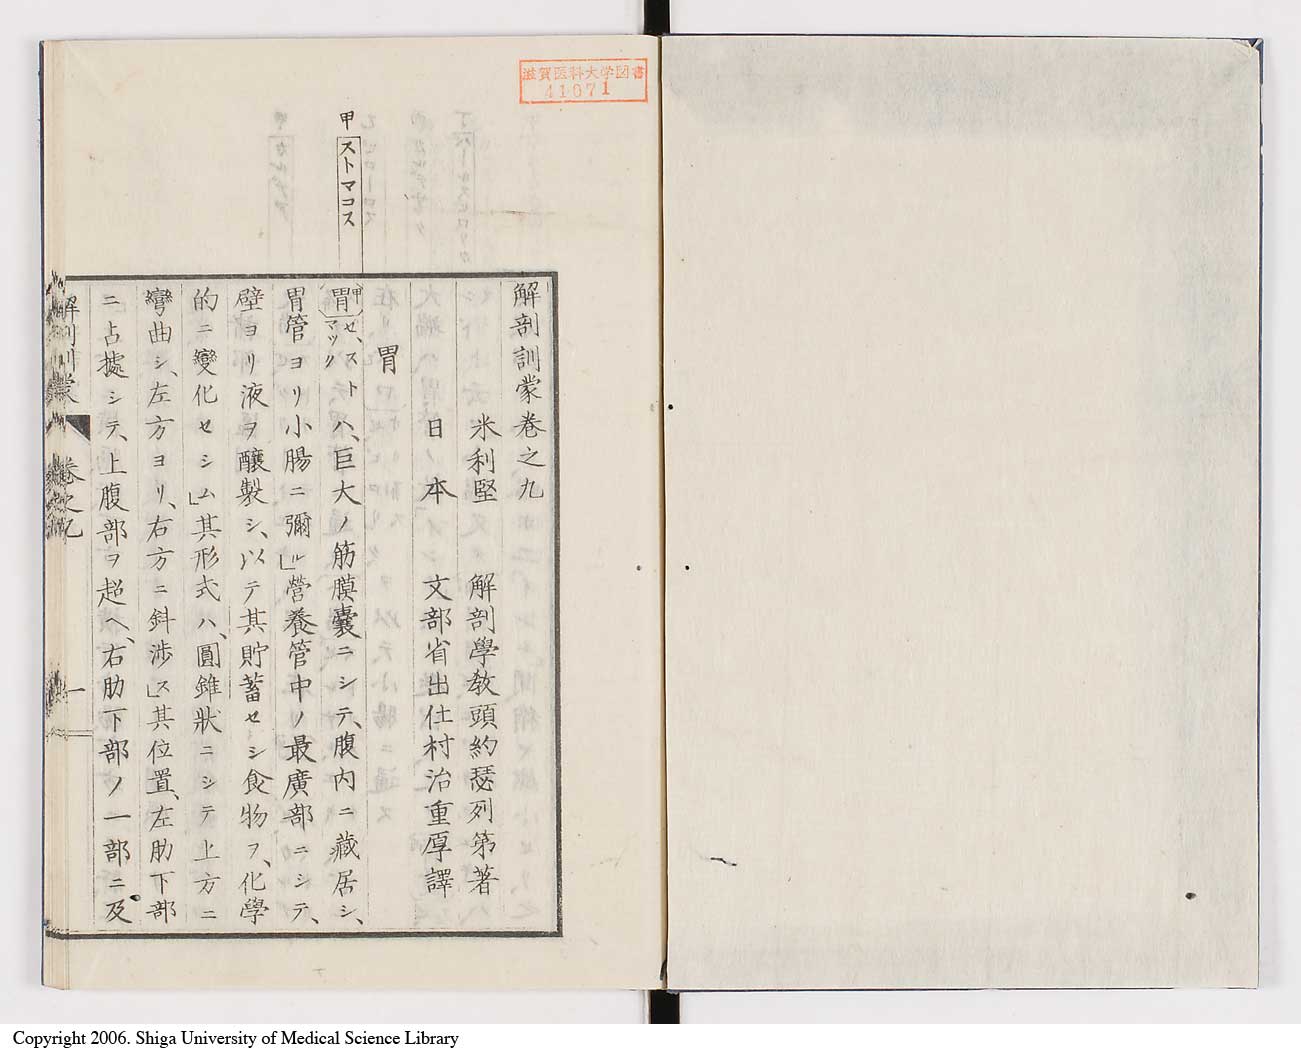 滋賀医科大学図書
41071
甲ストマコス
解剖訓蒙巻之九
米利堅　解剖學教頭約瑟列第著
日本　文部省出仕村治重厚譯
胃
甲
胃ゼ、スト
マック
ハ、巨大ノ筋膜囊ニシテ、腹内ニ藏居シ、
胃管ヨリ小腸ニ彌ル」營養管中ノ最廣部ニシテ、
壁ヨリ液ヲ釀製シ、以テ其貯蓄セシ食物ヲ、化學
的ニ變化セシム」其形式ハ、圓錐狀ニシテ上方ニ
彎曲シ、左方ヨリ、右方ニ斜渉ス」其位置、左肋下部
ニ占據シテ、上腹部ヲ超ヘ、右肋下部ノ一部ニ及
解剖訓蒙
巻之九
一
Copyright 2006. Shiga University of Medical Science Library